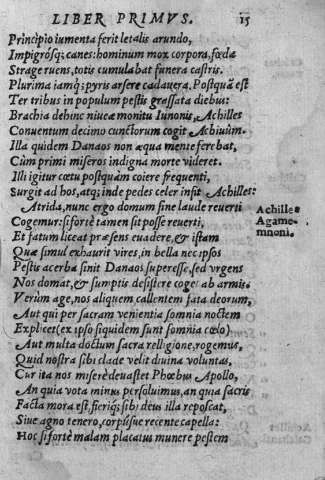 LIBER PRIMVS. 15
Principio iumenta ferit letalis arundo,
Impigrosq; canes: hominum mox corpora, fœda
Strage ruens, totis cumulabat funera castris.
Plurima iamq; pyris arsere cadauera. Postquā est
Ter tribus in populum pestis grassata diebus:
Brachia dehinc niuea monitu Iunonis, Achilles
Conuentum decimo cunctorum cogit Achiuûm.
Illa quidem Danaos non æqua mente ferebat,
Cùm primi miseros indigna morte videret.
Illi igitur cœtu postquàm coiere frequenti,
Surgit ad hos, atq; inde pedes celer infit Achilles:
Atrida, nunc ergo domum sine laude reuerti
Achilles
Cogemur: si forte tamen sit posse reuerti,
Agame-
Et fatum liceat præsens euadere, & istam
mnoni.
Quæ simul exhaurit vires, in bella nec ipsos
Pestis acerba sinit Danaos superesse, sed vrgens
Nos domat, & sumptis desistere cogit ab armis.
Verùm age, nos aliquem callentem fata deorum,
Aut qui per sacram venientia somnia noctem
Explicet (ex ipso siquidem sunt somnia cœlo)
Aut multa doctum sacra relligione, rogemus,
Quid nostra sibi clade velit diuina voluntas,
Cur ita nos miserè deuastet Phœbus Apollo,
An quia vota minus persoluimus, an quia sacris
Facta mora est, fieriq; sibi deus illa reposcat,
Siue agno tenero, corpúsue recente capella:
Hoc si forte malam placatus munere pestem